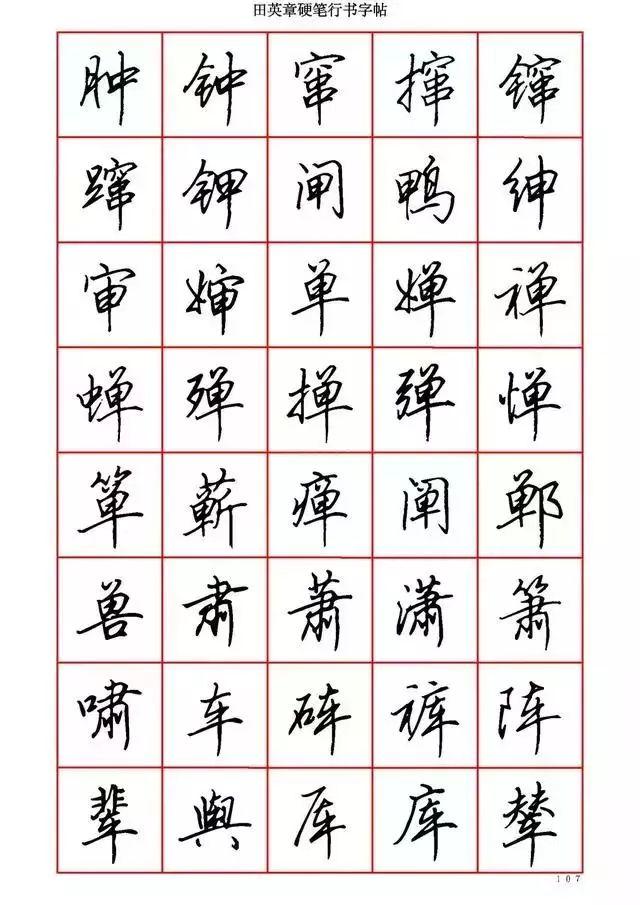 田英章硬笔行书字帖
肿钟窜撺镩
蹿钾闸鸭绅
审婶单婵禅
蝉殚掸弹惮
箪蕲瘅阐郸
兽肃萧潇箫
啸车砗裤阵
辈舆厍库辇
107